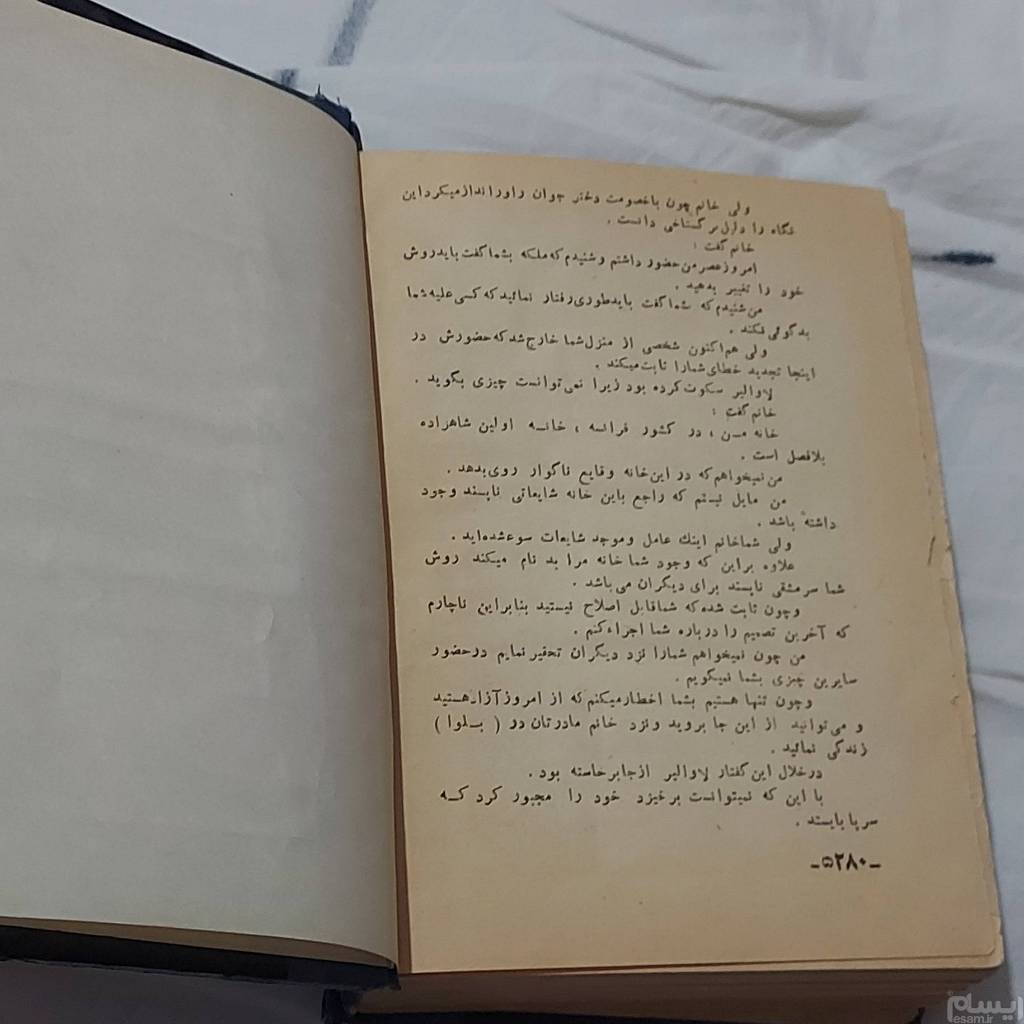 ولی خانم چون باخصومت دختر جوان راوراندازمیکرداین
نگاه را دلیل بر گستاخی دانست .
خانم گفت :
امروزعصرمن حضور داشتم وشنیدم که ملکه بشماگفت بایدروش
خود را تغییر بدهید .
من شنیدم که شماگفت بایدطوری رفتار نمائید که کسی علیه شما
بدگوئی نکند .
ولی هم اکنون شخصی از منزل شما خارج شد که حضورش در
اینجا تجدید خطای شمارا ثابت میکند .
لاوالیر سکوت کرده بود زیرا نمی توانست چیزی بگوید .
خانم گفت :
خانه مـن ، در کشور فرانسه ، خانـه اولین شاهزاده
بلافصل است .
من نمیخواهم که در این خانه وقایع ناگوار روی بدهد .
من مایل نیستم که راجع باین خانه شایعاتی ناپسند وجود
داشته باشد .
ولی شماخانم اینك عامل وموجد شایعات سوءشده اید .
علاوه براین که وجود شما خانه مرا بد نام میکند روش
شما سرمشقی ناپسند برای دیگران می باشد .
وچون ثابت شده که شماقابل اصلاح نیستید بنابراین ناچارم
که آخرین تصمیم را درباره شما اجراءکنم .
من چون نمیخواهم شمارا نزد دیگران تحقیر نمایم درحضور
سایرین چیزی بشما نمیگویم .
وچون تنها هستیم بشما اخطارمیکنم که از امروز آزادهستید
و می توانید از این جا بروید ونزد خانم مادرتان در ( بـلوا )
زندگی نمائید .
درخلال این گفتار لاوالیر ازجابرخاسته بود .
با این که نمیتوانست برخیزد خود را مجبور کرد کـه
سرپا بایستد .
-۵۲۸۰-
ایسام
esam.ir